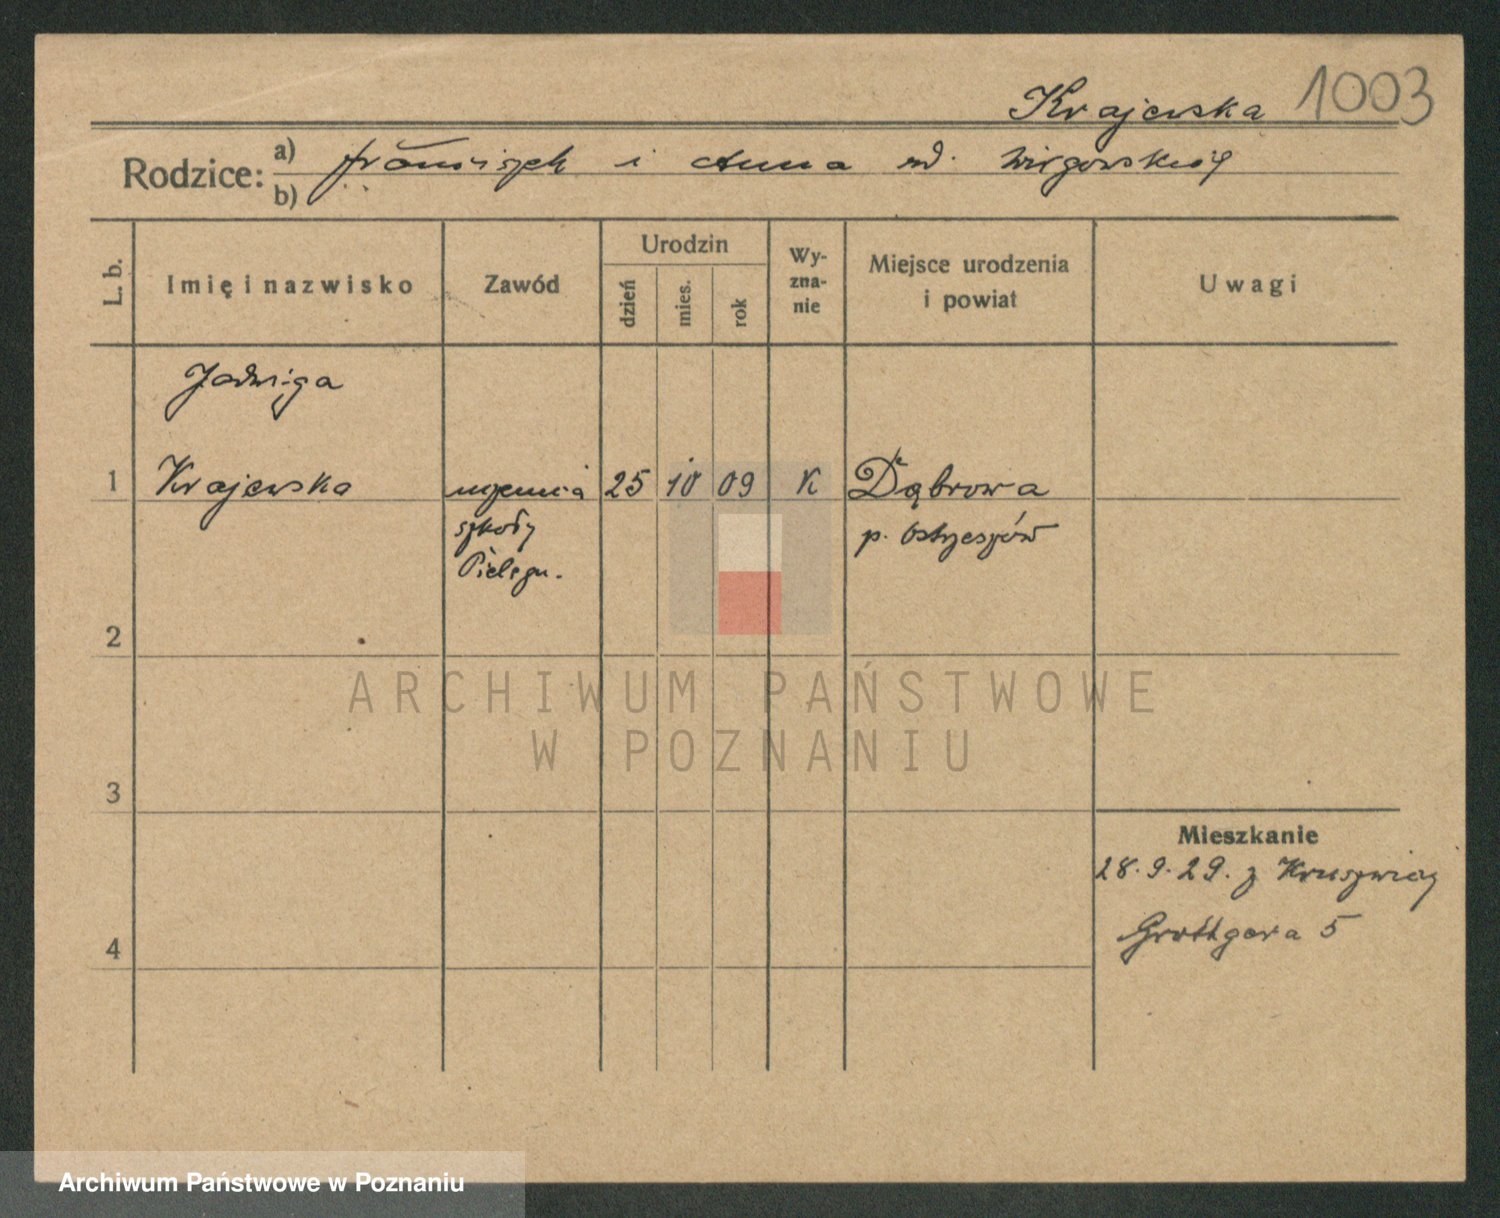 Krajewska 1003
Rodzice: a) Franciszek i Anna
b)
L. b.
Imię i nazwisko
Zawód
Urodzin
dzień
mies.
rok
Wy-
zna-
nie
Miejsce urodzenia
i powiat
Uwagi
Jadwiga
1 Krajewska uczenica 25 10 09 K Dąbrowa
szkoły p. Ostrzeszów
Pielęgn.
2
3
Mieszkanie
28.9.29. z Kruszwicy
Grottgera 5
4
ARCHIWUM PAŃSTWOWE
W POZNANIU
Archiwum Państwowe w Poznaniu